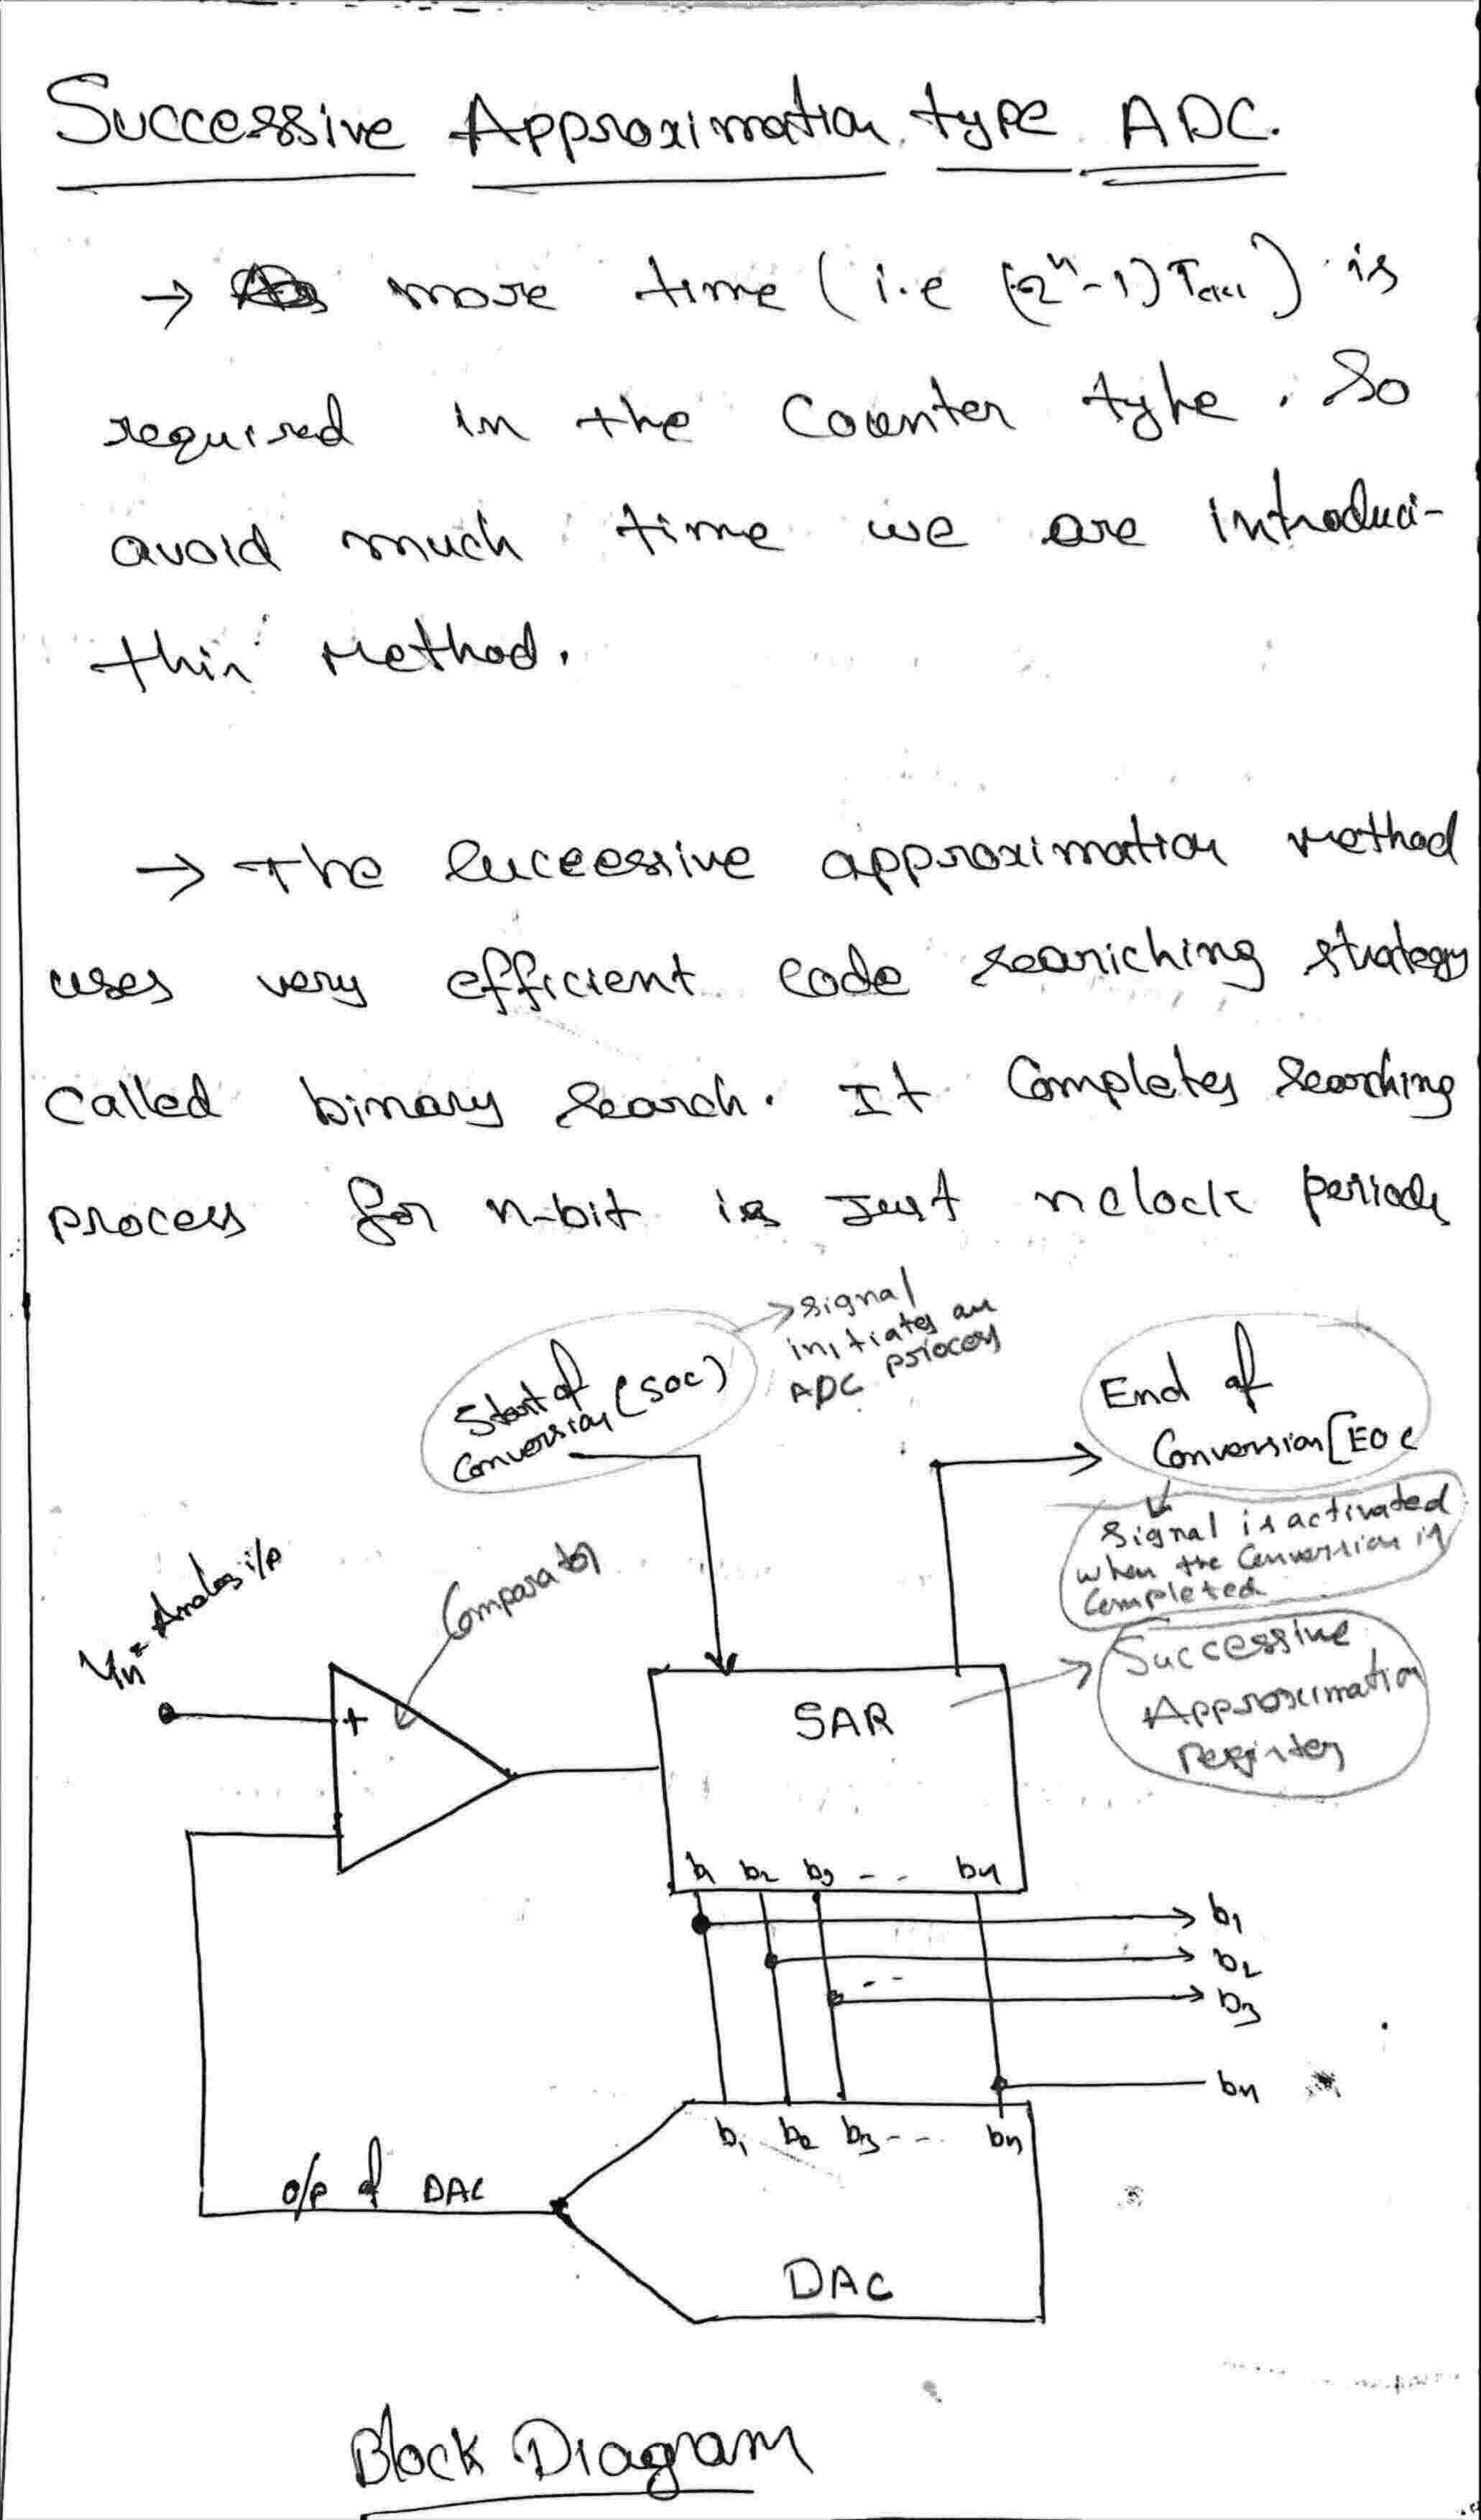 Successive Approximation type ADC.
→ more time (i.e (2ⁿ-1) Tclk) is
required in the Counter type. So
avoid much time we are introduci-
this Method.
→ The successive approximation method
uses very efficient code seariching strategy
Called binary search. It Completes searching
process for n-bit is Just n clock periods
→ signal
initiates an
ADC process
Start of
Conversion (SOC)
End of
Conversion [EOC
Signal is activated
when the Conversion is
Completed
Vin = Analog i/p
Comparator
+
SAR
Successive
Approximation
Register
b1 b2 b3 - - bn
b1
b2
- -
b3
bn
b1 b2 b3 - - - bn
o/p of DAC
DAC
Block Diagram